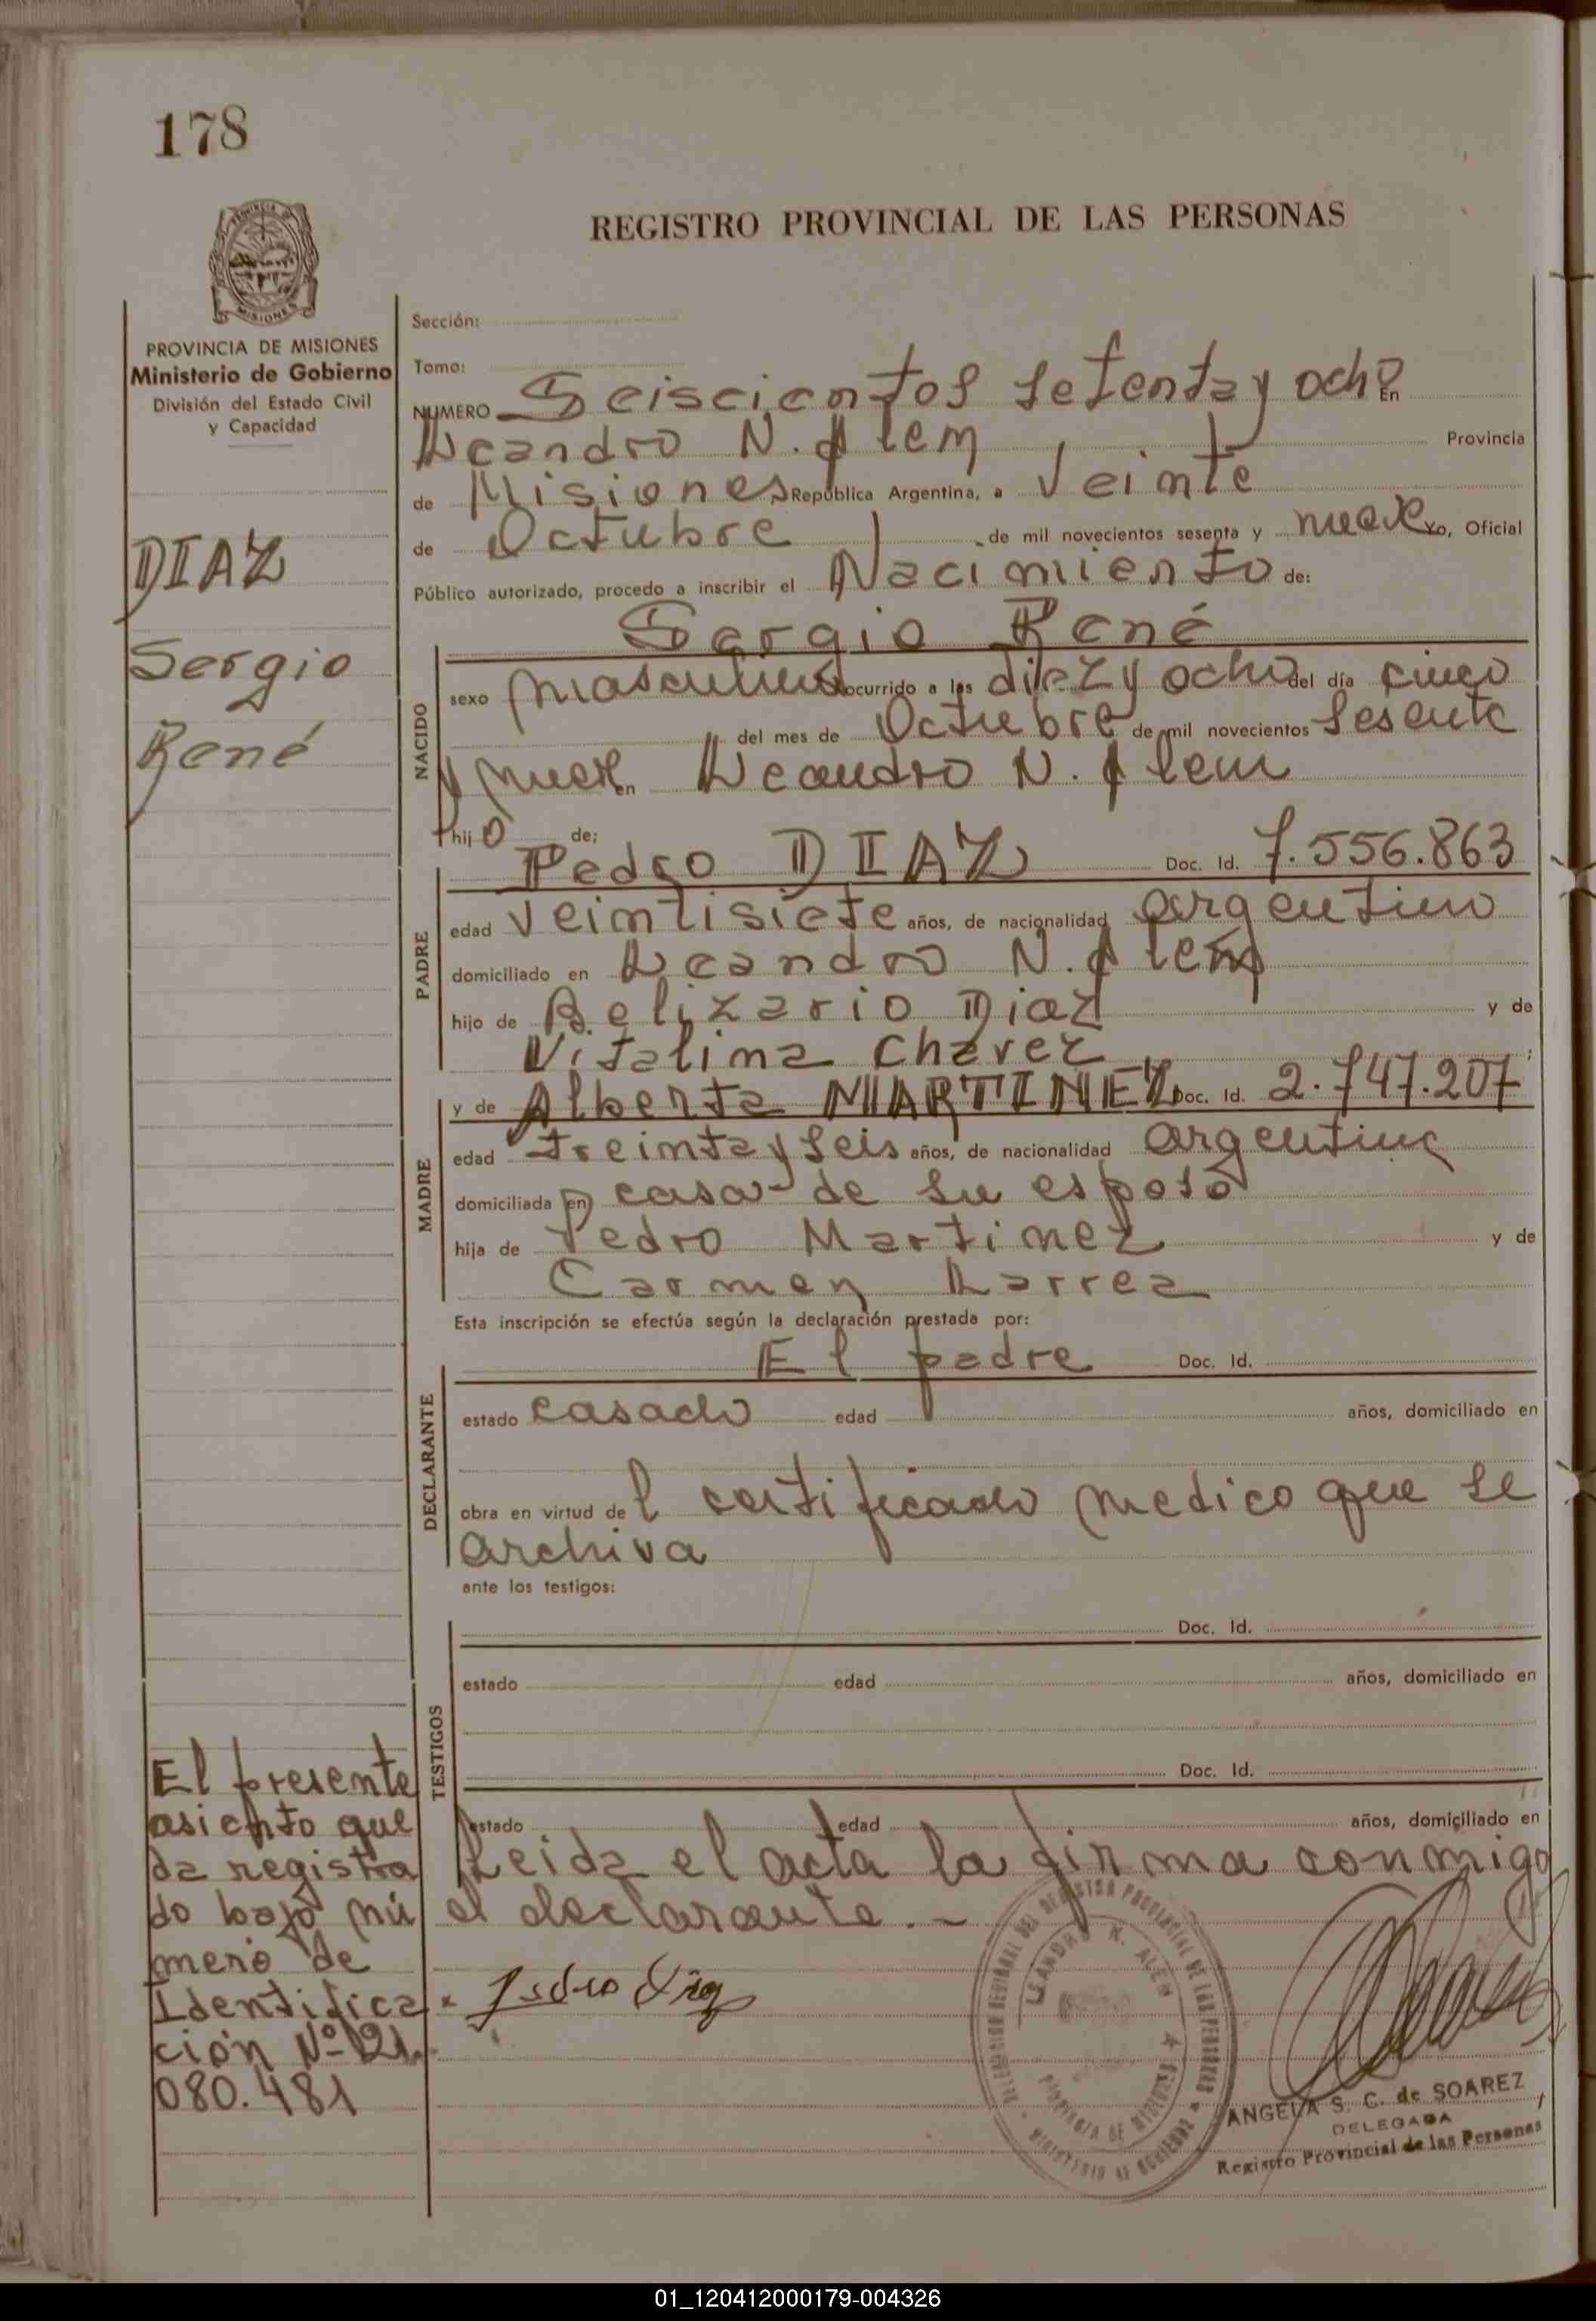 178
REGISTRO PROVINCIAL DE LAS PERSONAS
MISIONES
PROVINCIA DE MISIONES
Ministerio de Gobierno
División del Estado Civil
y Capacidad
DIAZ
Sergio
René
Sección:
Tomo:
NUMERO Seiscientos setenta y ocho En
Leandro N. Alem Provincia
de Misiones República Argentina, a Veinte
de Octubre de mil novecientos sesenta y nueve Yo, Oficial
Público autorizado, procedo a inscribir el Nacimiento de:
Sergio René
NACIDO
sexo masculino ocurrido a las diez y ocho del día cinco
del mes de Octubre de mil novecientos sesenta
y nueve en Leandro N. Alem
hijo de:
Pedro DIAZ Doc. Id. 7.556.863
PADRE
edad veintisiete años, de nacionalidad argentino
domiciliado en Leandro N. Alem
hijo de Belizario Diaz y de
Vitalina Chavez
y de Alberta MARTINEZ Doc. Id. 2.747.207
MADRE
edad treinta y seis años, de nacionalidad argentina
domiciliada en casa de su esposo
hija de Pedro Martinez y de
Carmen Larrea
Esta inscripción se efectúa según la declaración prestada por:
El padre Doc. Id.
DECLARANTE
estado casado edad años, domiciliado en
obra en virtud del certificado medico que se
archiva
ante los testigos:
Doc. Id.
TESTIGOS
estado edad años, domiciliado en
Doc. Id.
estado edad años, domiciliado en
Leida el acta la firma conmigo
el declarante.-
Pedro Diaz
El presente
asiento que
da registra
do bajo nú
mero de
Identifica
ción Nº 21.
080.481
LEANDRO N. ALEM
PROVINCIA DE MISIONES
ANGELA S. C. de SOAREZ
DELEGADA
Registro Provincial de las Personas
01_120412000179-004326